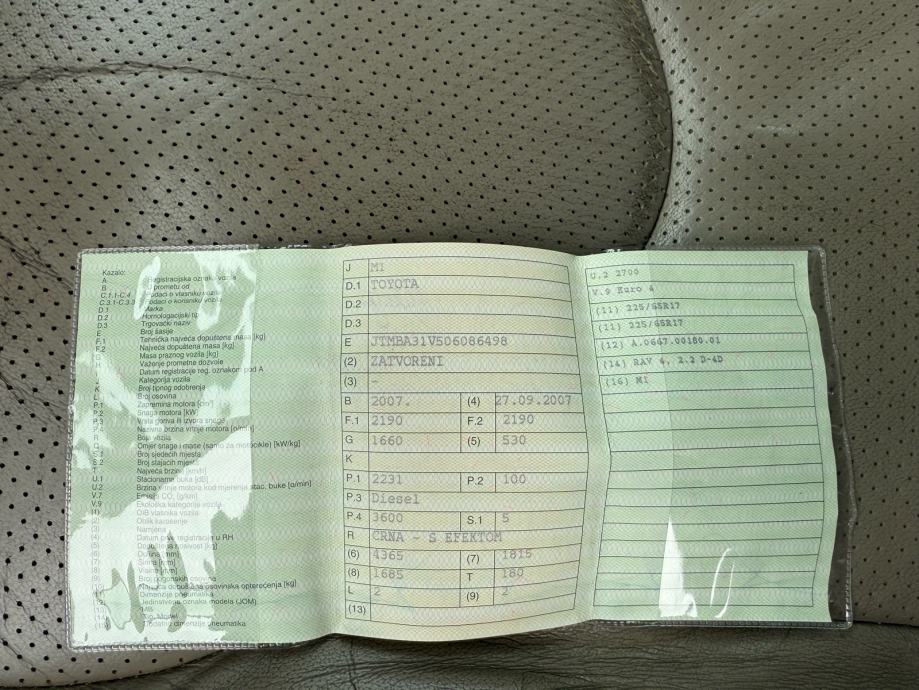 Kazalo:
A Registracijska oznaka vozila
B prometu od
C.1.1-C.4 Podaci o vlasniku vozila
C.3.1-C.3.3 Podaci o korisniku vozila
D.1 Marka
D.2 Homologacijski tip
D.3 Trgovački naziv
E Broj šasije
F.1 Tehnička najveća dopuštena masa [kg]
F.2 Najveća dopuštena masa [kg]
G Masa praznog vozila [kg]
H Važenje prometne dozvole
Datum registracije reg. oznakom pod A
J Kategorija vozila
K Broj tipnog odobrenja
L Broj osovina
P.1 Zapremina motora [cm³]
P.2 Snaga motora [kW]
P.3 Vrsta goriva ili izvora snage
P.4 Nazivna brzina vrtnje motora [o/min]
R Boja vozila
Q Omjer snage i mase (samo za motocikle) [kW/kg]
S.1 Broj sjedećih mjesta
S.2 Broj stajaćih mjesta
T Najveća brzina [km/h]
U.1 Stacionarna buka [dB]
U.2 Brzina vrtnje motora kod mjerenja stac. buke [o/min]
V.7 Emisija CO₂ [g/km]
V.9 Ekološka kategorija vozila
(1) OIB vlasnika vozila
(2) Oblik karoserije
(3) Namjena
(4) Datum prve registracije u RH
(5) Dopuštena nosivost [kg]
(6) Duljina [mm]
(7) Širina [mm]
(8) Visina [mm]
(9) Broj pogonskih osovina
(10) Najveća dopuštena osovinska opterećenja [kg]
(11) Dimenzije pneumatika
(12) Jedinstvena oznaka modela (JOM)
Tip, Model
Dodatne dimenzije pneumatika
J M1
D.1 TOYOTA
D.2
D.3
E JTMBA31V506086498
(2) ZATVORENI
(3) -
B 2007. (4) 27.09.2007
F.1 2190 F.2 2190
G 1660 (5) 530
K
P.1 2231 P.2 100
P.3 Diesel
P.4 3600 S.1 5
R CRNA - S EFEKTOM
(6) 4365 (7) 1815
(8) 1685 T 180
L 2 (9) 2
(13)
U.2 2700
V.9 Euro 4
(11) 225/65R17
(11) 225/65R17
(12) A.0667.00180.01
(14) RAV 4, 2.2 D-4D
(16) M1